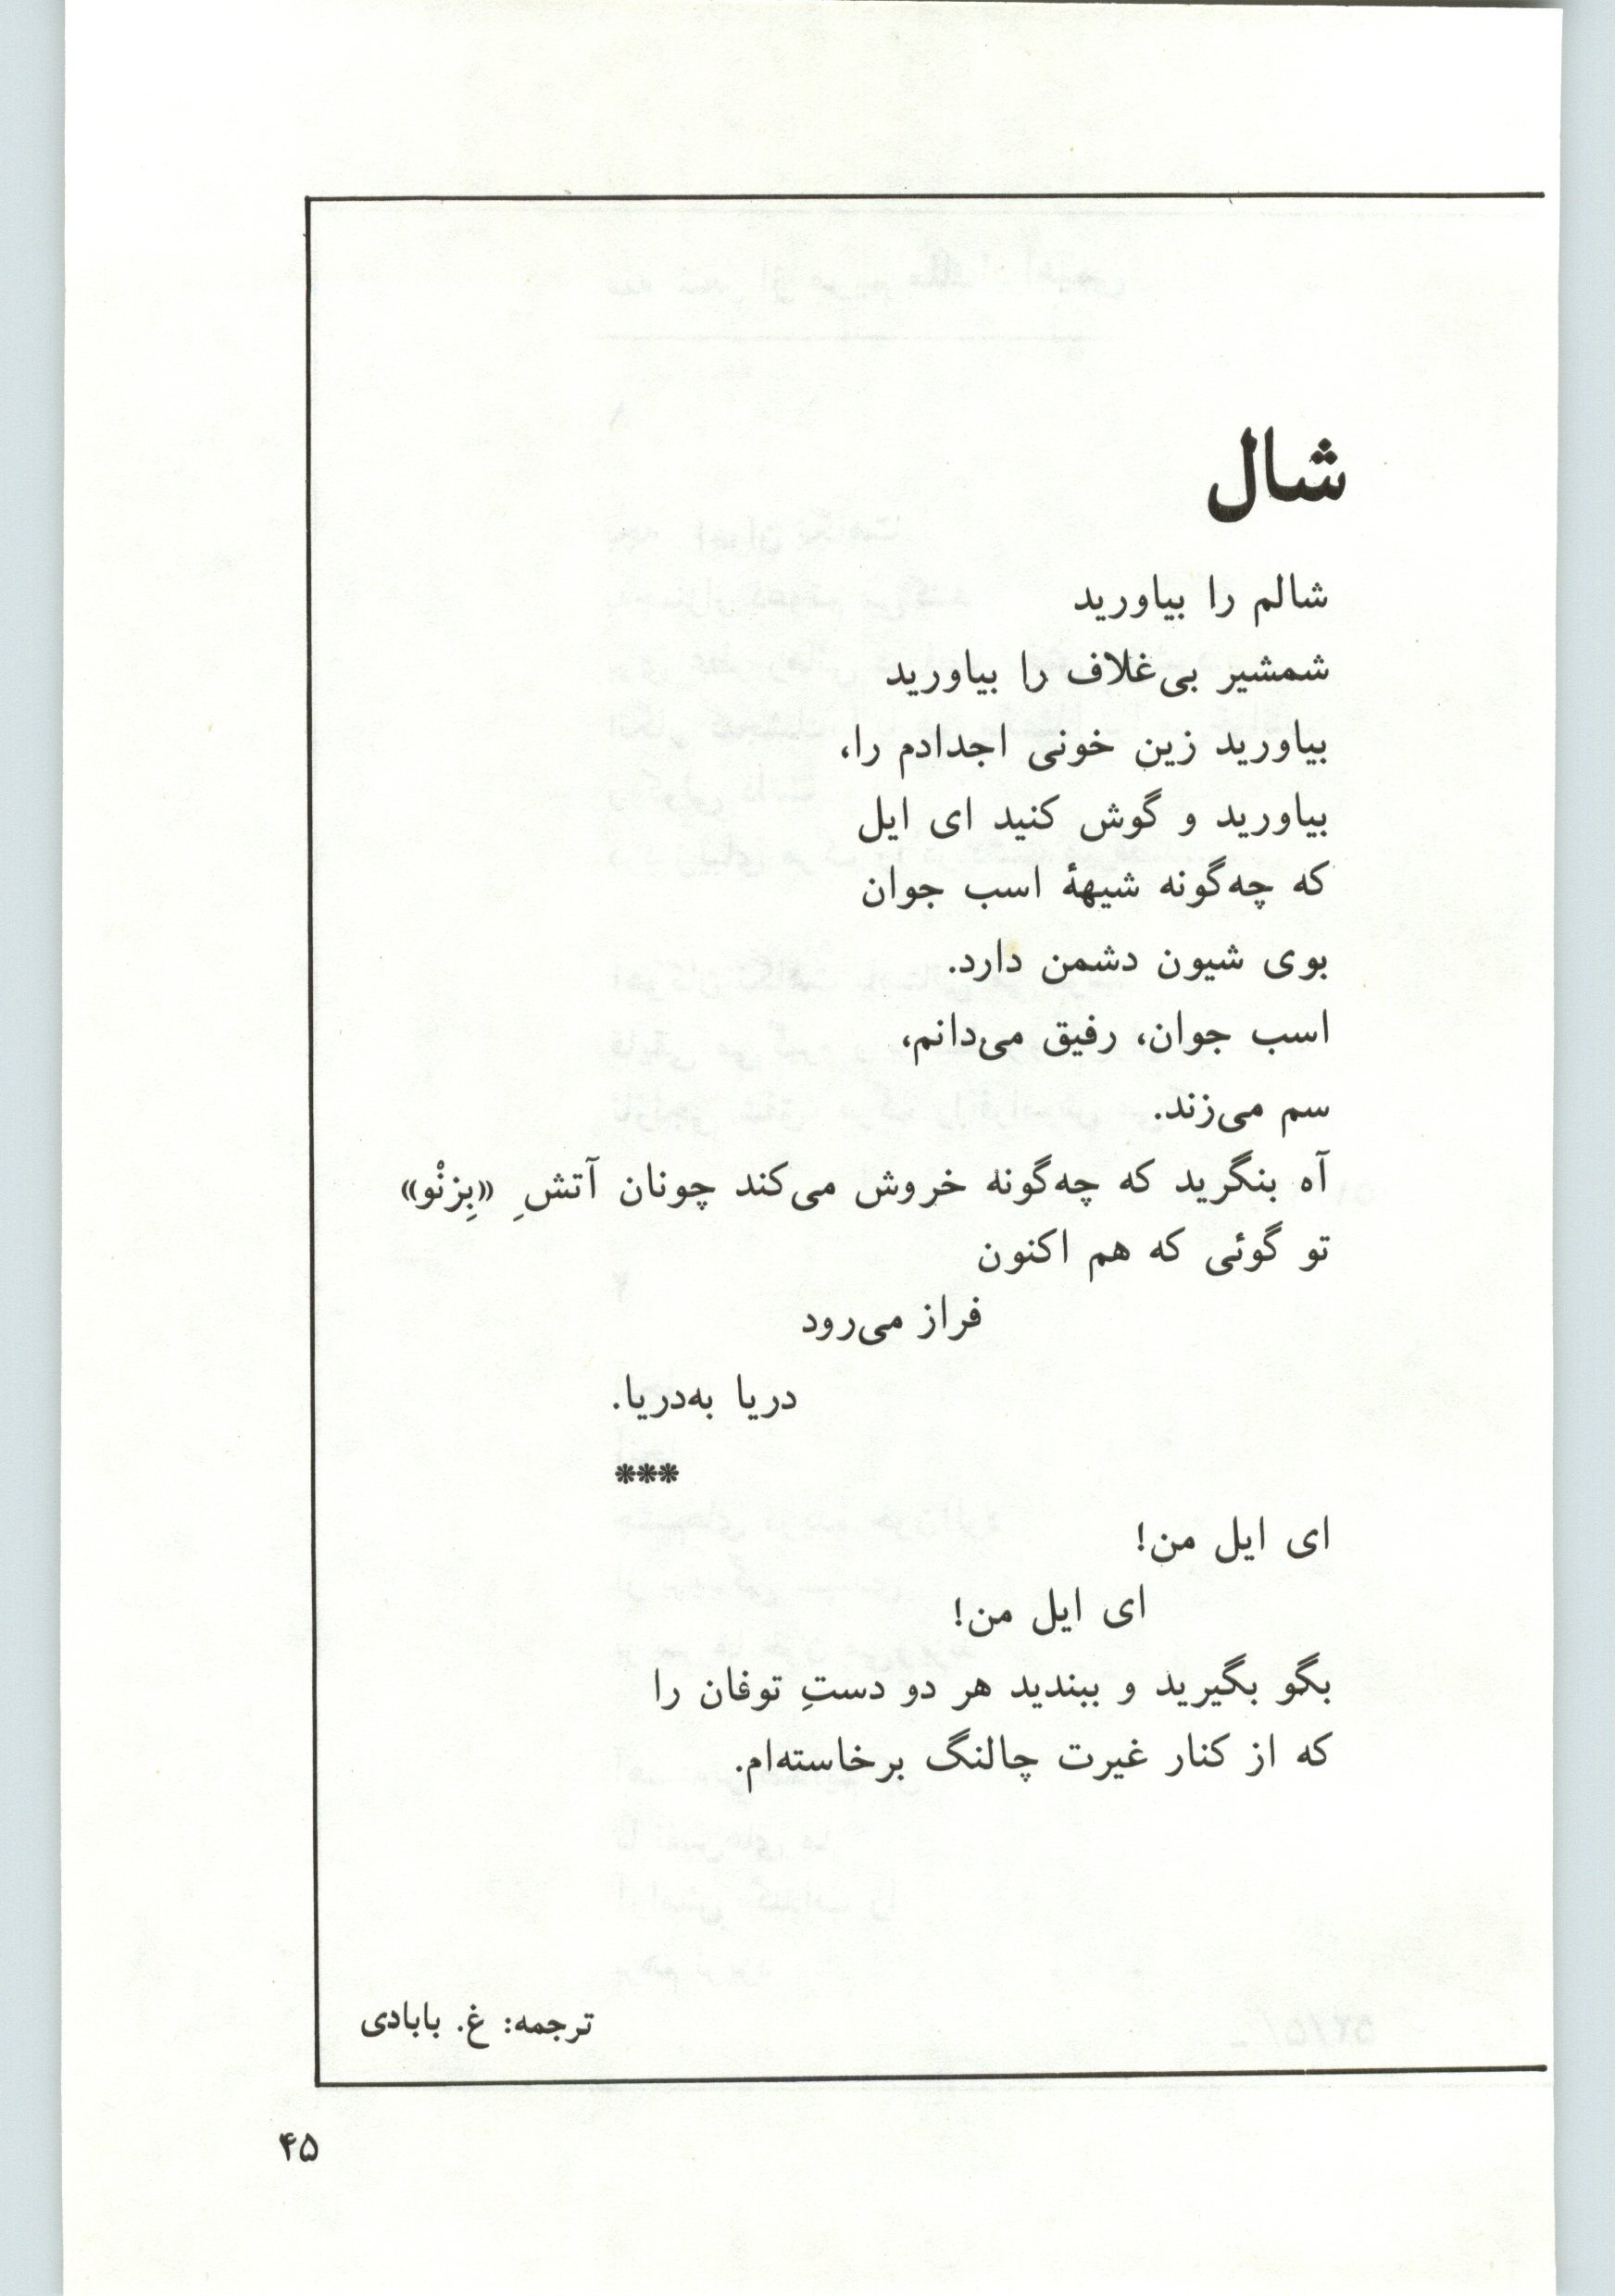 شال
شالم را بیاورید
شمشیر بی‌غلاف را بیاورید
بیاورید زین خونی اجدادم را،
بیاورید و گوش کنید ای ایل
که چه‌گونه شیههٔ اسب جوان
بوی شیون دشمن دارد.
اسب جوان، رفیق می‌دانم،
سم می‌زند.
آه بنگرید که چه‌گونه خروش می‌کند چونان آتشِ «بِزنْو»
تو گوئی که هم اکنون
فراز می‌رود
دریا به‌دریا.
***
ای ایل من!
ای ایل من!
بگو بگیرید و ببندید هر دو دستِ توفان را
که از کنار غیرت چالنگ برخاسته‌ام.
ترجمه: غ. بابادی
۴۵